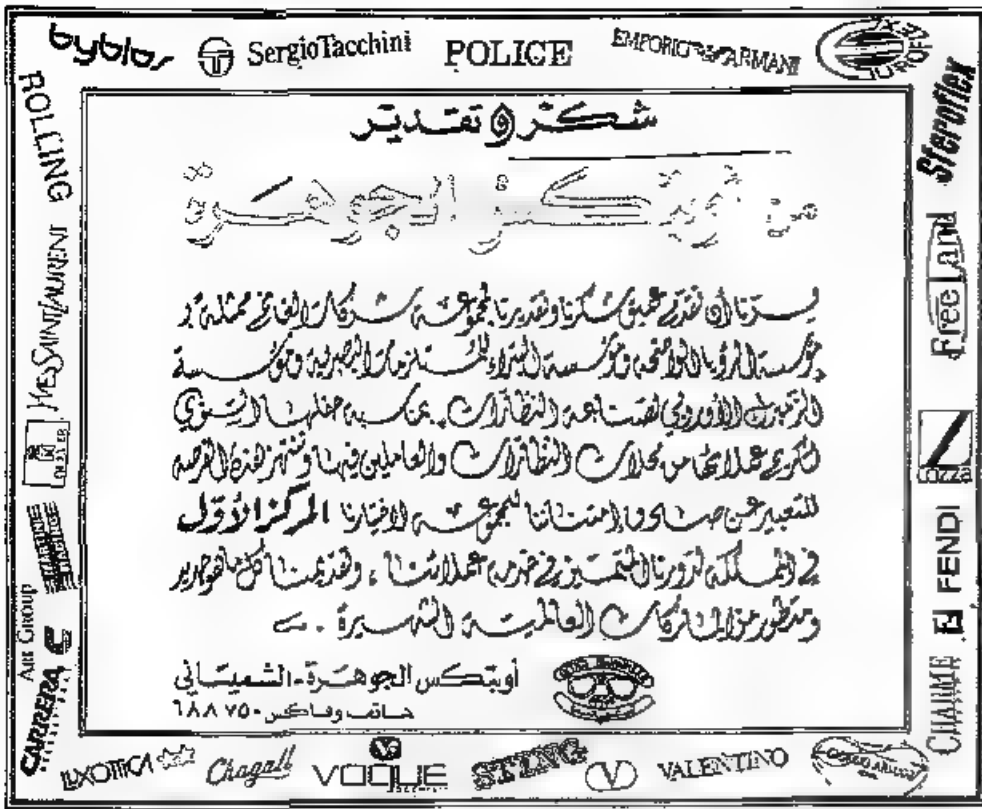 byblos SergioTacchini POLICE EMPORIO ARMANI
ROLLING
YVES SAINT LAURENT
Art Group
CARRERA
Steroflex
FreeLand
FENDI
CHARME
شكر و تقدير
من أوبتكس الجوهرة
يسرنا أن نتقدم بعميق شكرنا وتقديرنا لمجموعة شركات الفاتح ممثلة بـ
مؤسسة الرؤيا الواضحة ومؤسسة البتراء للمستلزمات البصرية ومؤسسة
الأوروبي لصناعة النظارات بمناسبة حفلها السنوي
لتكريم عملائها من محلات النظارات والعاملين فيها وننتهز هذه الفرصة
للتعبير عن صادق امتناننا للمجموعة لاختيارنا المركز الأول
في المملكة لدورنا المتميز في خدمة عملائنا ، وتقديمنا كل ما هو جديد
ومتطور من الماركات العالمية الشهيرة .
أوبتكس الجوهرة - الشميساني
هاتف وفاكس ٦٨٨٧٥٠
LUXOTTICA Chagall VOGUE STING VALENTINO